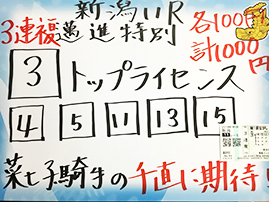 新潟11R
3連複 邁進特別
各100円
計1000円
3 トップライセンス
4 5 11 13 15
菜七子騎手の千直に期待!